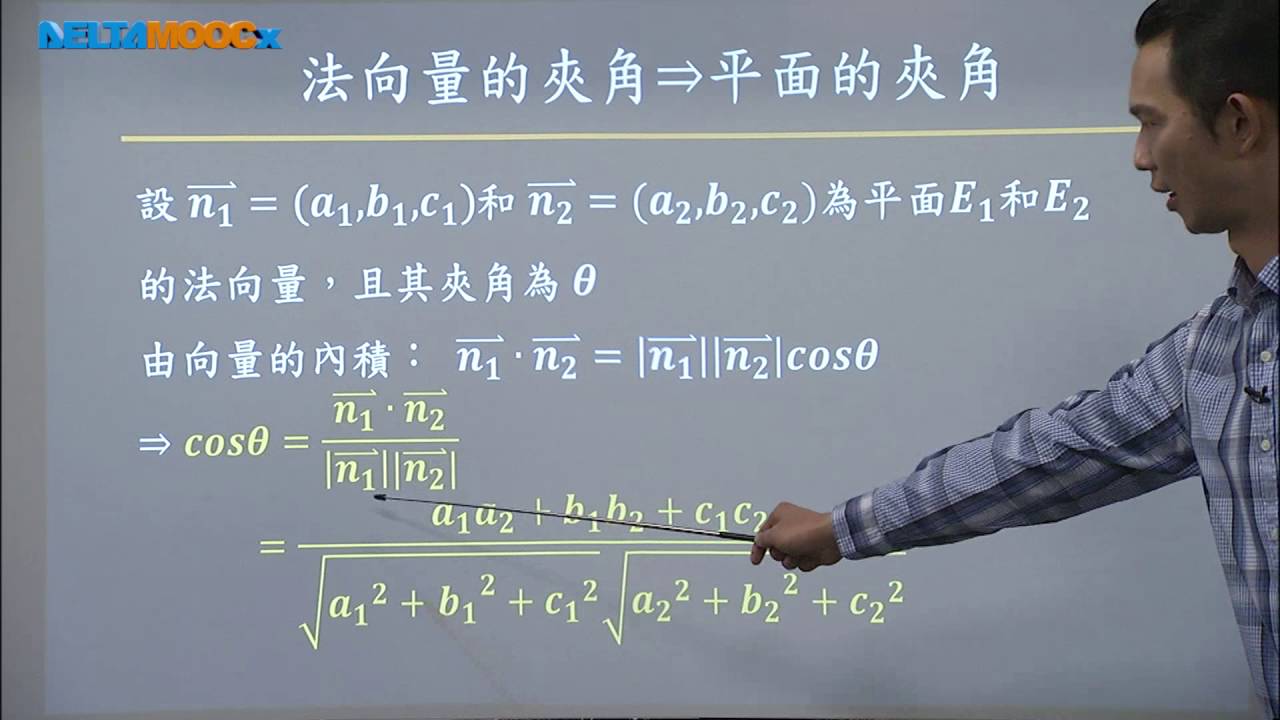 DELTAMOOCx
法向量的夾角⇒平面的夾角
設 n₁⃗ = (a₁,b₁,c₁)和 n₂⃗ = (a₂,b₂,c₂)為平面E₁和E₂
的法向量，且其夾角為 θ
由向量的內積： n₁⃗ · n₂⃗ = |n₁⃗||n₂⃗|cosθ
⇒ cosθ = (n₁⃗ · n₂⃗)/(|n₁⃗||n₂⃗|)
= (a₁a₂ + b₁b₂ + c₁c₂)/(√(a₁² + b₁² + c₁²) √(a₂² + b₂² + c₂²))